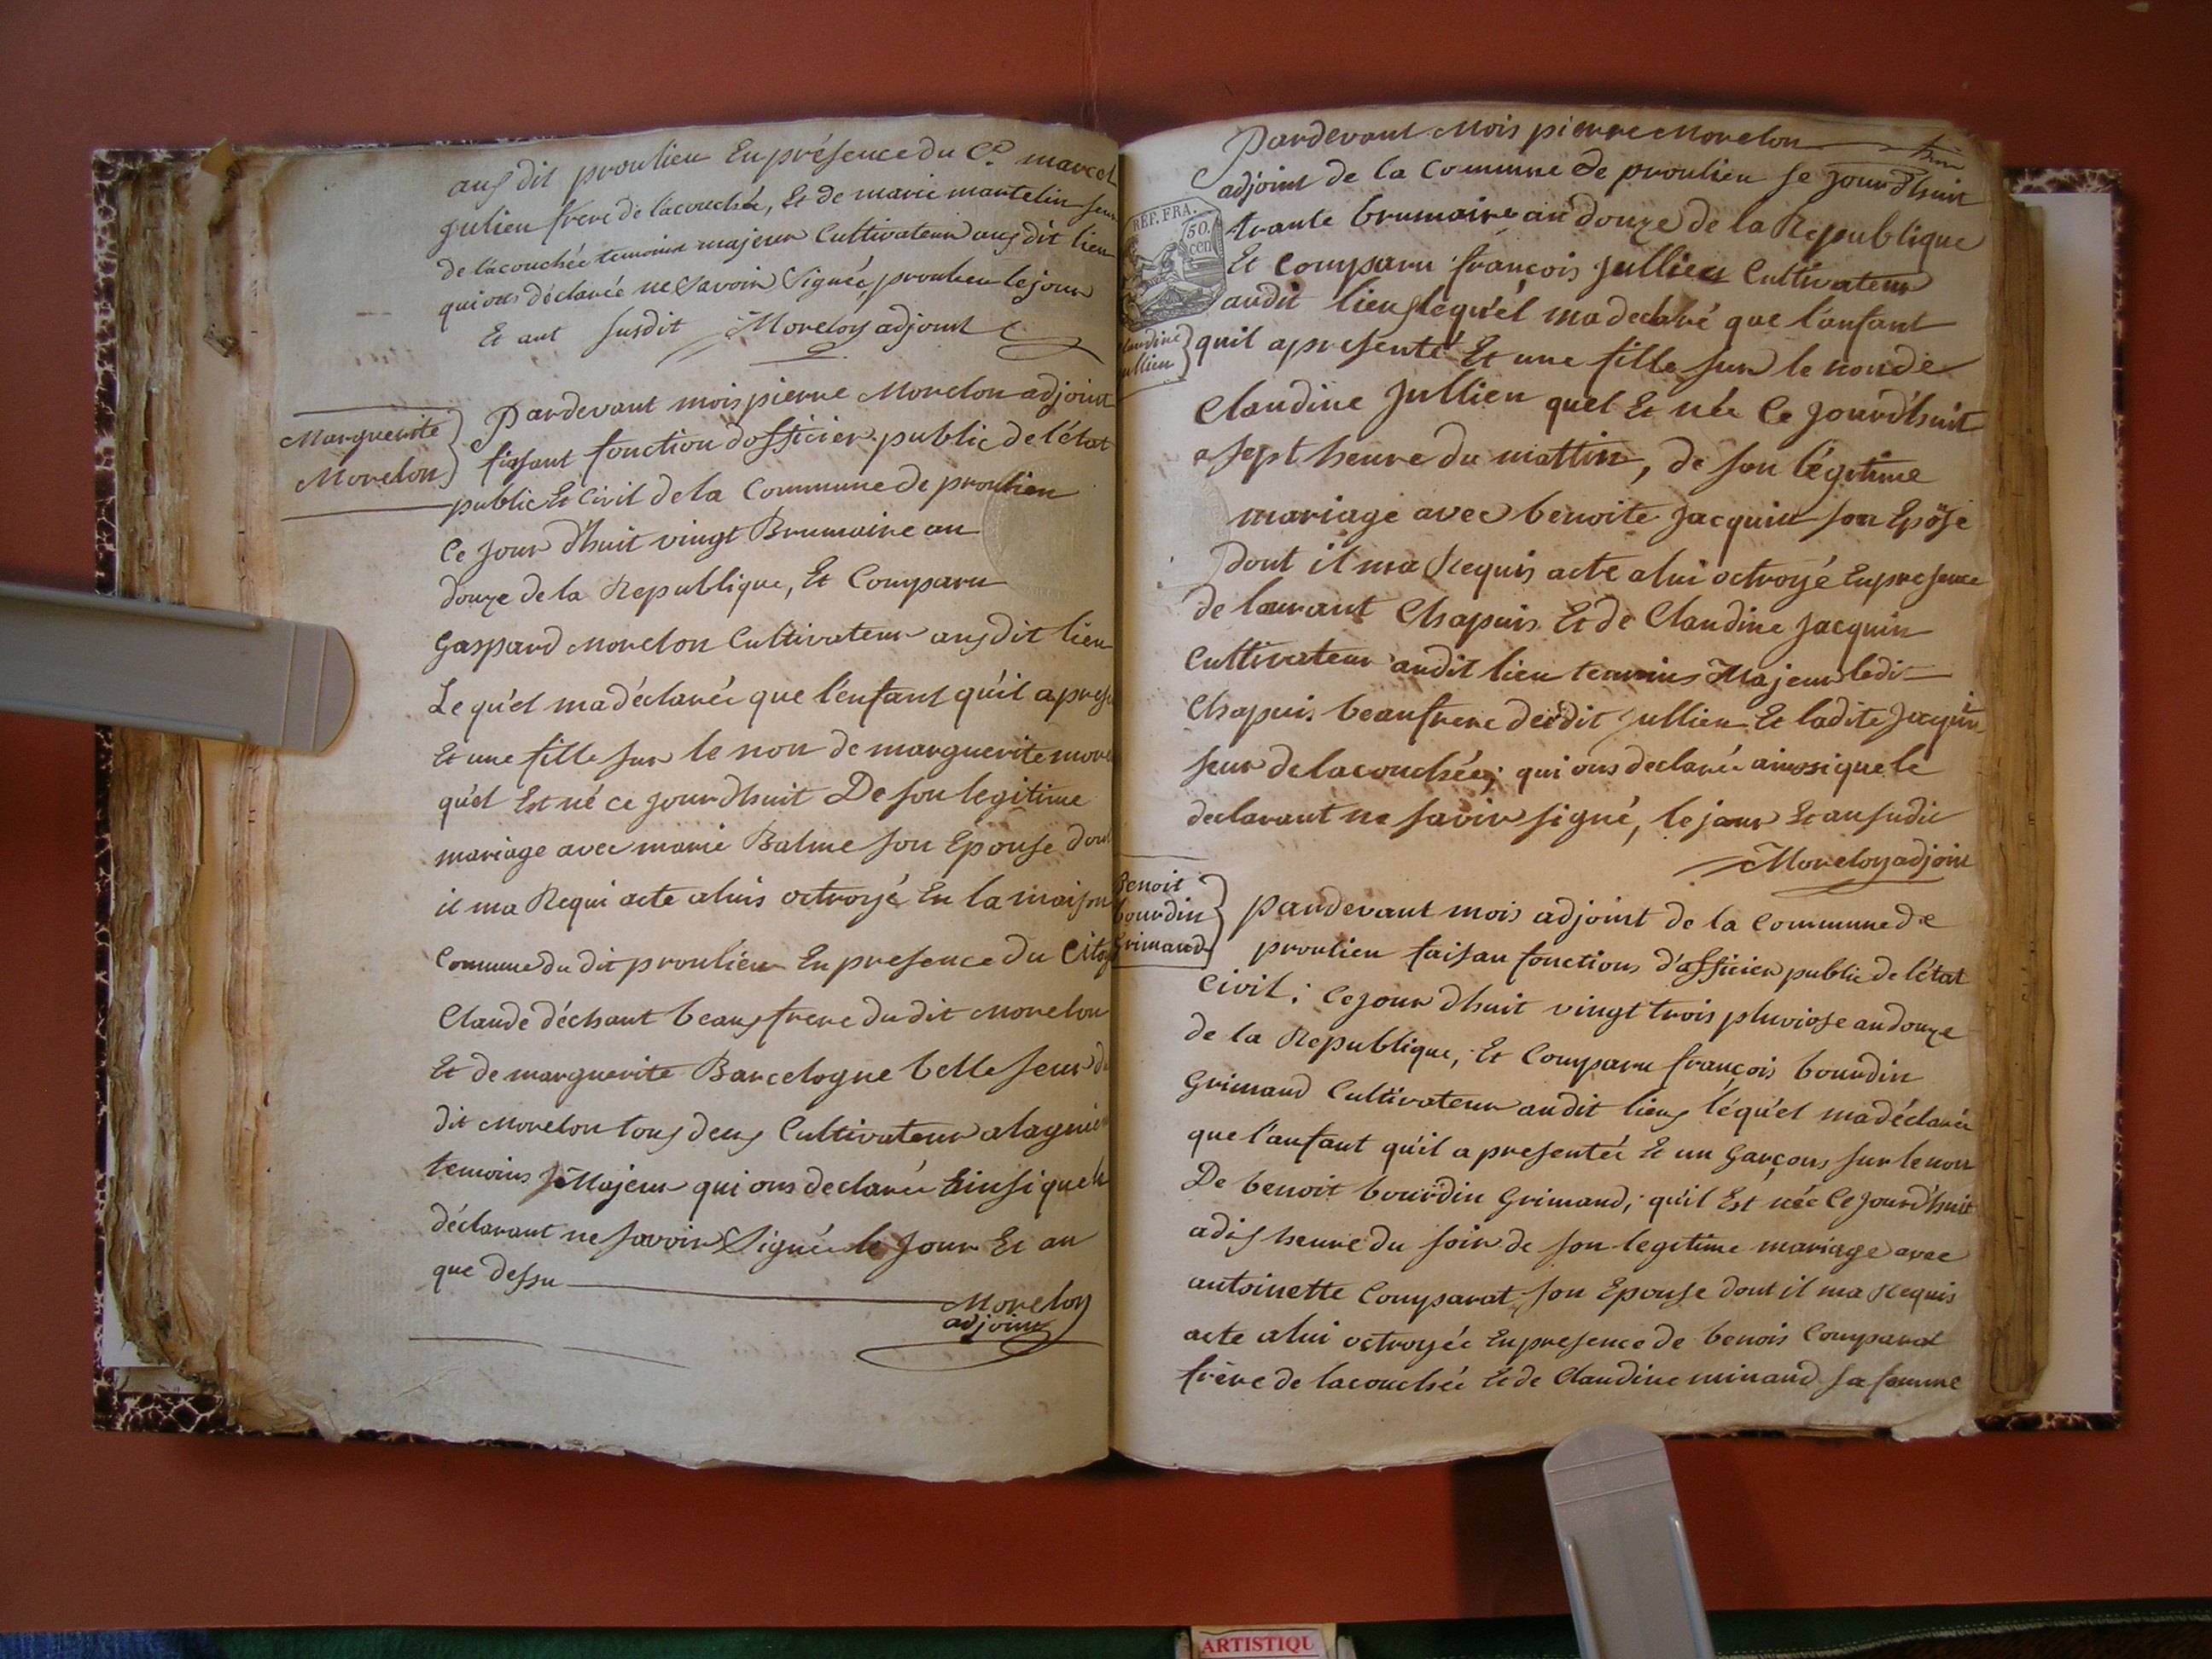 aus dit proulieu En présence du Cn. marcel
Julien frere de lacouchée, Et de marie martelin seur
de lacouchée temoins majeur Cultivateur aus dit lieu
qui ons déclarée ne Savoir Signée, proulieu le jour
Et ant susdit Morelon adjoint
Marguerite
Morelon
Pardevant mois pierre Morelon adjoint
faisant fonction dofficier public de l'état
public Et Civil de la Commune de proulieu
Ce Jour d'huit vingt Brumaire an
douze de la Republique, Et Comparu
Gaspard Morelon Cultivateur aus dit lieu
Le qu'el ma déclarée que l'enfant qu'il a prese
Et une fille sur le non de marguerite more
qu'el Est né ce jour dhuit De son legitime
mariage avec marie Balme son Epouse dont
il ma Requi acte a luis octroyé En la maison
Commune du dit proulieu En presence du Citoy
Claude déchant beaus frere du dit Morelon
Et de marguerite Barcelogne belle seur du
dit Morelon tous deus Cultivateur a lagnieu
temoins Majeur qui ons declarée Einsi que le
déclarant ne savoir Signée le Jour Et an
que dessu
Morelon
adjoint
Pardevant Mois pierre Morelon
adjoint de la Commune de proulieu se jour d'huit
REP. FRA.
50.
cen
trante brumaire an douze de la Republique
Et Comparu françois Jullien Cultivateur
audit lieus léqu'el ma declaré que l'anfant
laudine
ullien
quil a presenté Et une fille sur le non de
Claudine Jullien quel Et née Ce Jourd'huit
a sept heure du mattin, de son légitime
mariage avec benoite Jacquin son Epose
dont il ma Requis acte a lui octroyé En presence
de laurant Chapuis Et de Claudine Jacquin
Cultivateur audit lieu temoins Majeur ledit
Chapuis beaufrere dudit Jullien Et ladite Jacquin
seur de lacouchée; qui ons declarée ainosi que le
declarant ne savoir signé, le jour Et an sudit
Morelon adjoin
Benoit
bourdin
Grimaud
pardevant mois adjoint de la Commune de
proulieu faisan fonctions d'officier public de l'état
Civil; Ce jour dhuit vingt trois pluviose an douze
de la Republique, Et Comparu françois bourdin
Grimaud Cultivateur au dit lieus léqu'el ma déclarée
que l'anfant qu'il a presentée Et un Garçons sur le non
De benoit bourdin Grimaud; qu'il Est née Ce Jourd'huit
a dis heure du soir de son legitime mariage avec
antoinette Comparat son Epouse dont il ma Requis
acte a lui octroyée En presence de benois Comparat
frère de lacouchée Et de Claudine minaud sa famme
ARTISTIQU